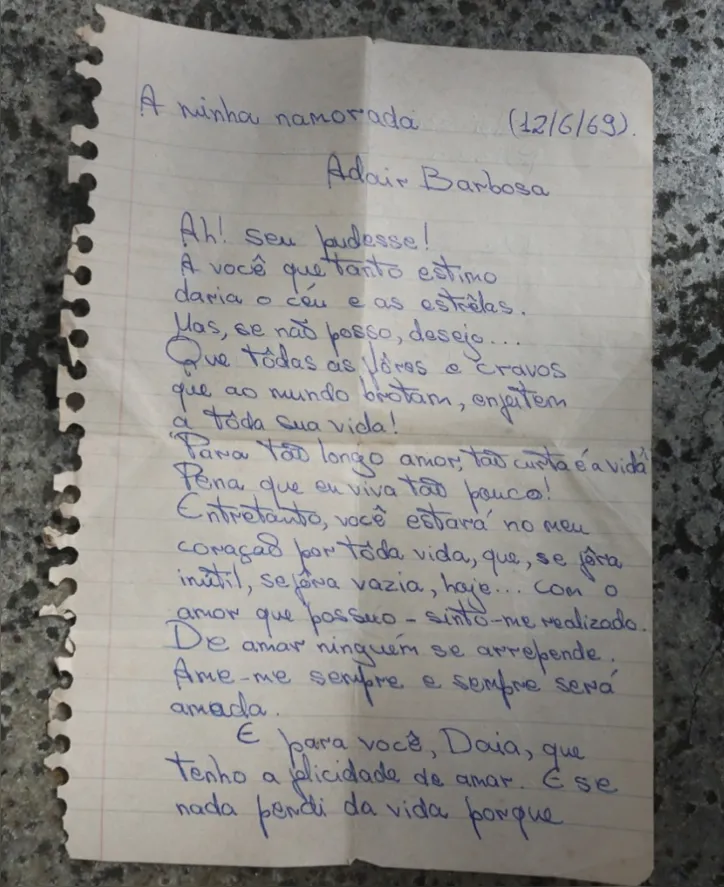 A minha namorada (12/6/69).
Adair Barbosa
Ah! seu pudesse!
A você que tanto estimo
daria o céu e as estrêlas.
Mas, se não posso, desejo...
Que tôdas as flôres e cravos
que ao mundo brotam, enfeitem
a tôda sua vida!
"Para tão longo amor, tão curta é a vida"
Pena que eu viva tão pouco!
Entretanto, você estará no meu
coração por tôda vida, que, se fôra
inútil, se fôra vazia, hoje... com o
amor que possuo - sinto-me realizado.
De amar ninguém se arrepende.
Ame-me sempre e sempre será
amada.
E para você, Daia, que
tenho a flicidade de amar. E se
nada perdi da vida porque